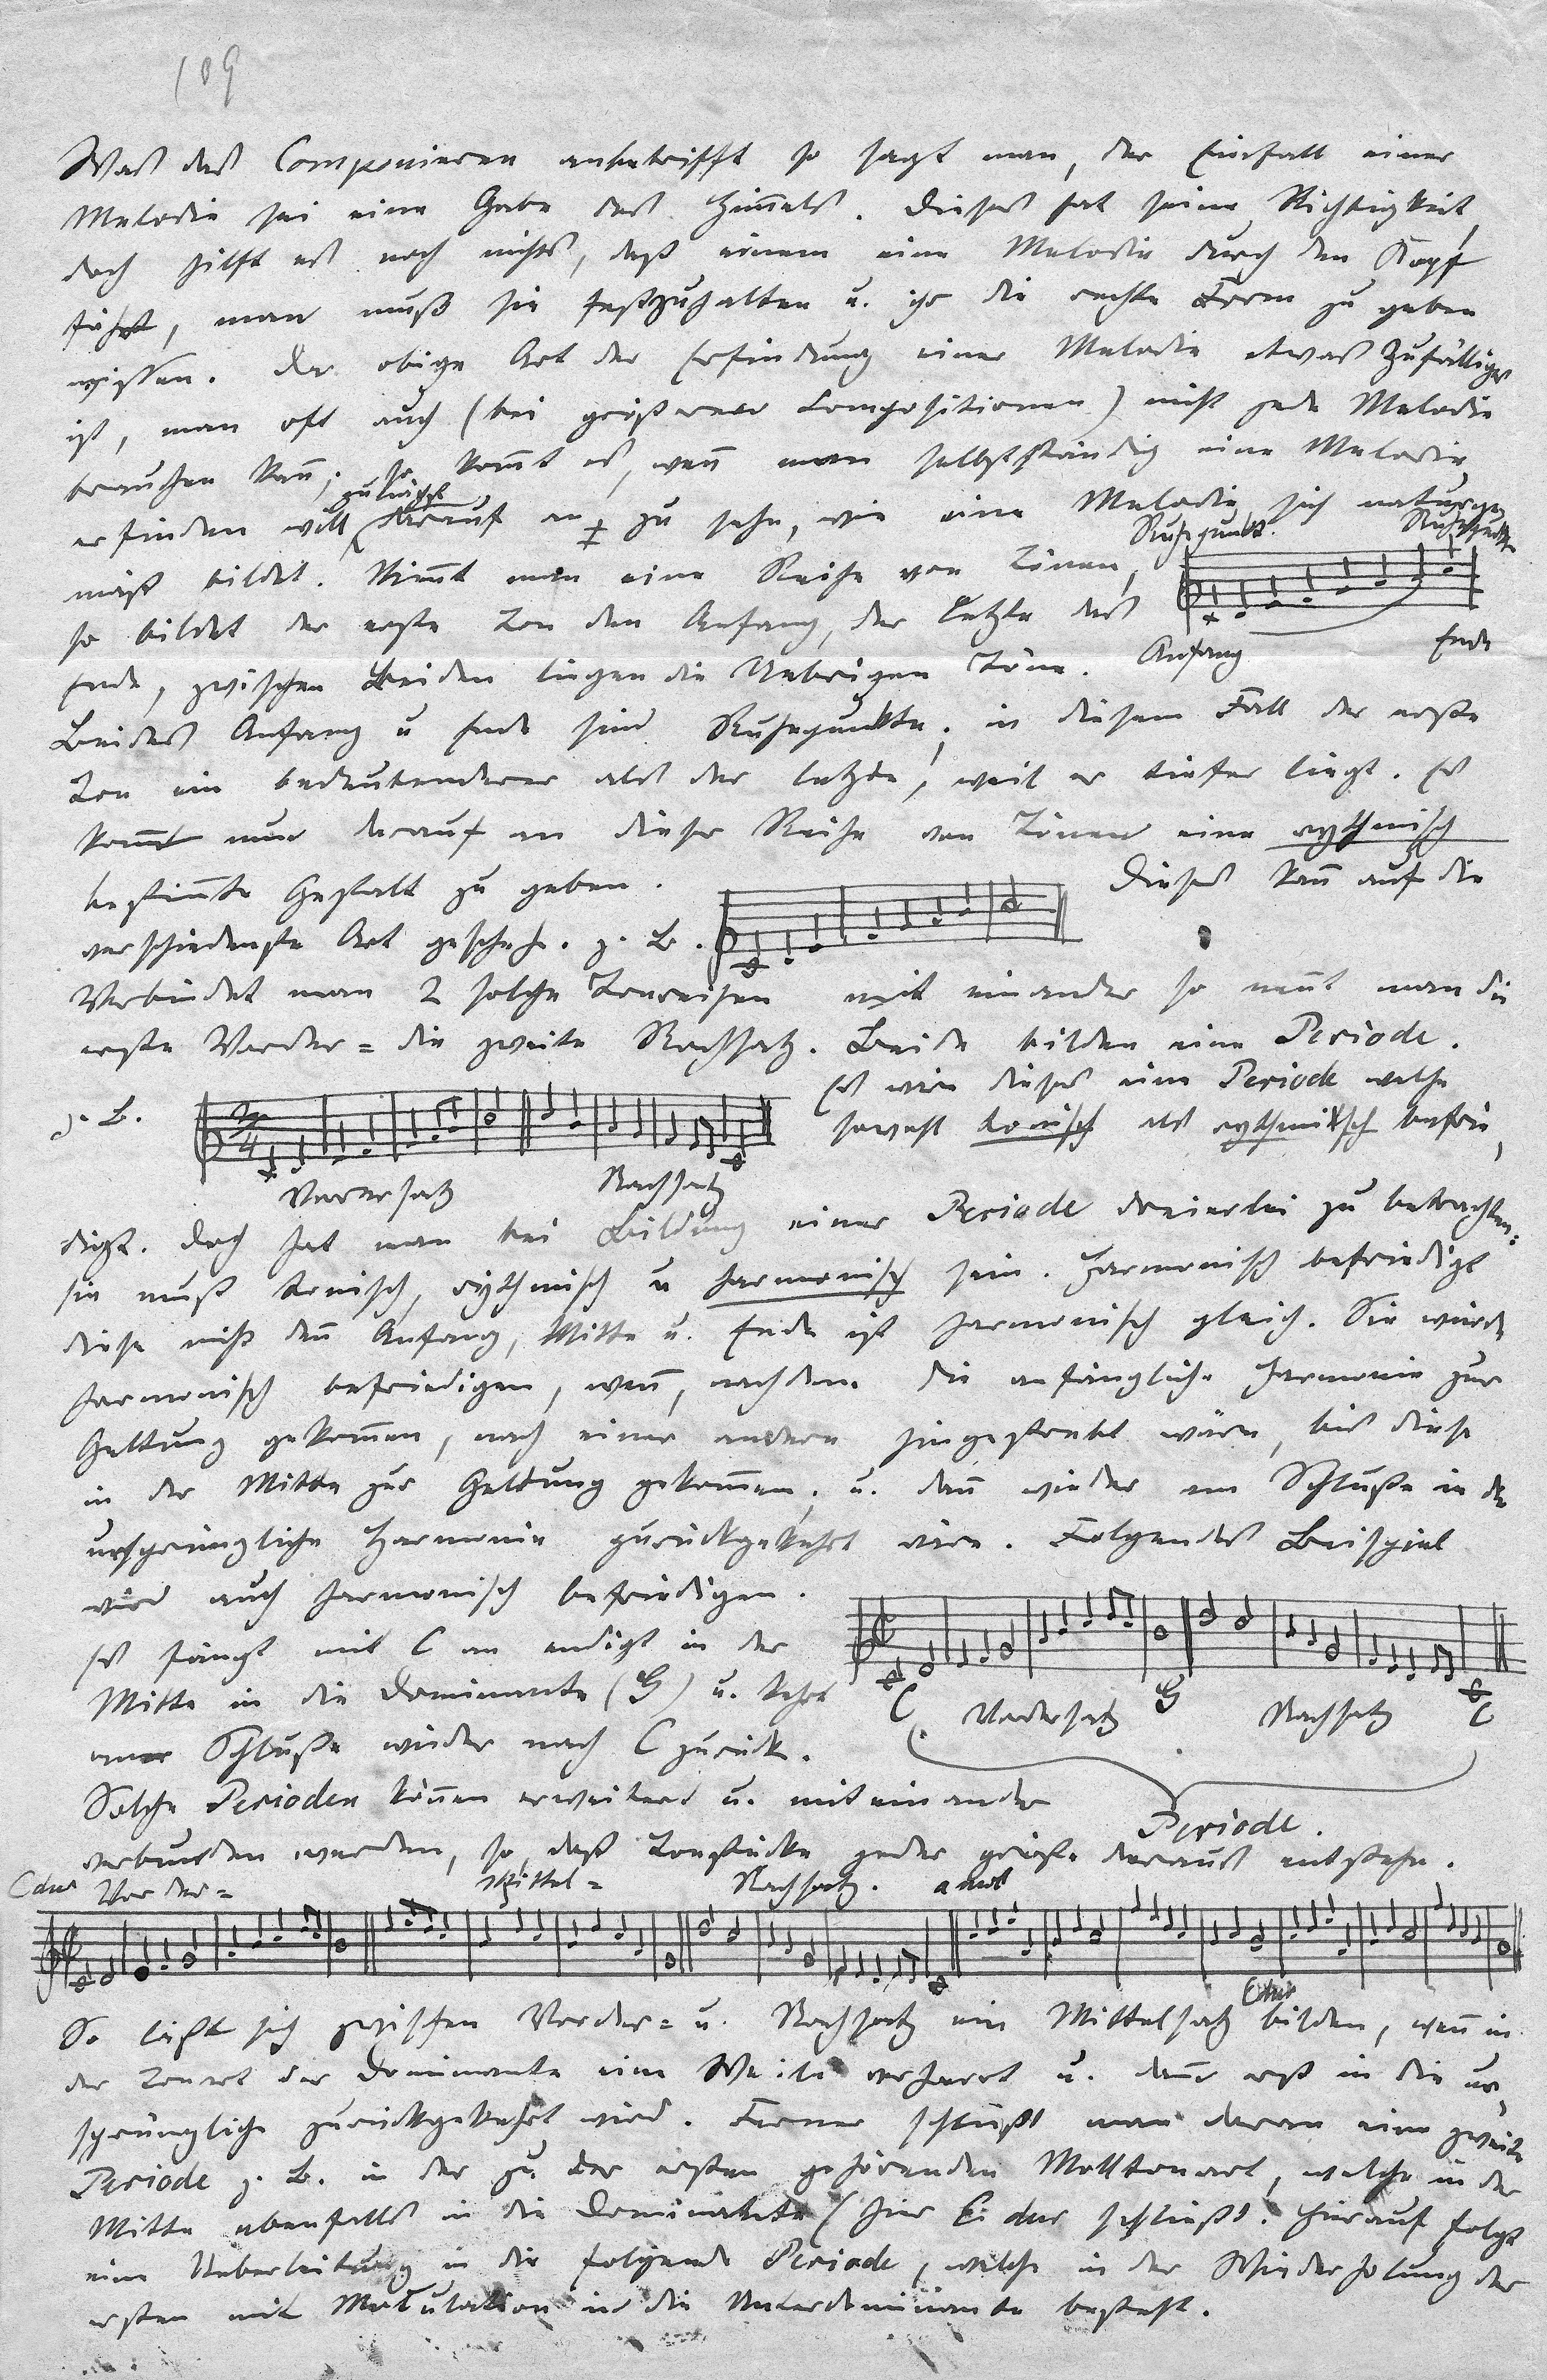 109
Was das Componieren anbetrifft so sagt man, der Einfall einer
Melodie sei eine Gabe des Himmels. Dieses hat seine Richtigkeit,
doch hilft es noch nichts, daß einem eine Melodie durch den Kopf
fährt, man muß sie festzuhalten u. ihr die rechte Form zu geben
wissen. Da obige Art der Erfindung einer Melodie etwas Zufälliges
ist, man oft auch (bei größeren Compositionen) nicht jede Melodie
brauchen kan̅; so kom̅t es, wen̅ man selbstständig eine Melodie
erfinden will zunächst darauf an zu sehn, wie eine Melodie sich naturge
mäß bildet. Nim̅t man eine Reihe von Tönen,
Ruhepunkt. Ruhepunkt
so bildet der erste Ton den Anfang, der letzte das
Anfang Ende
Ende, zwischen Beiden liegen die Uebrigen Töne.
Beides Anfang u Ende sind Ruhepunkte; in diesem Fall der erste
Ton ein bedeutenderer als der letzte, weil er tiefer liegt. Es
kom̅t nun darauf an dieser Reihe von Tönen eine rythmisch
bestim̅te Gestalt zu geben. Dieses kan̅ auf die
verschiedenste Art geschehn. z. B.
Verbindet man 2 solche Tonreihen mit einander so nen̅t man die
erste Vorder= die zweite Nachsatz. Beide bilden eine Periode.
z. B. Es wäre dieses eine Periode welche
sowohl tonisch als rythmisch befrie,
Vordersatz Nachsatz
digt. Doch hat man bei Bildung einer Periode dreierlei zu betrachten:
sie muß tonisch, rythmisch u harmonisch sein. Harmonisch befriedigt
diese nicht den̅ Anfang, Mitte u. Ende ist harmonisch gleich. Sie würde
harmonisch befriedigen, wen̅, nachdem die anfängliche Harmonie zur
Geltung gekom̅en, nach einer andern hingestrebt wäre, bis diese
in der Mitte zur Geltung gekom̅en, u. dan̅ wieder am Schluße in die
ursprüngliche Harmonie zurückgekehrt wäre. Folgendes Beispiel
wird auch harmonisch befriedigen.
Es fängt mit C an endigt in der
Mitte in die Dominante (G) u. kehrt
C Vordersatz G Nachsatz C
am Schluße wieder nach C zurück.
Solche Perioden kön̅en erweitert u. mit einander
Periode.
verbunden werden, so, daß Tonstücke jeder größe daraus entstehn.
Cdur Vorder= Mittel= Nachsatz. a mol
Edur
So läßt sich zwischen Vorder= u. Nachsatz ein Mittelsatz bilden, wen̅ in
der Tonart der Dominante eine Weile verharrt u. dan̅ erst in die ur,
sprüngliche zurückgekehrt wird. Ferner schließt man daran eine zweite
Periode z. B. in der zu der ersten gehörenden Molltonart, welche in der
Mitte ebenfalls in die Dominante (hier E dur schließt. Hierauf folgt
eine Ueberleitung in die folgende Periode, welche in der Wiederholung der
ersten mit Modulation in die Unterdominante besteht.